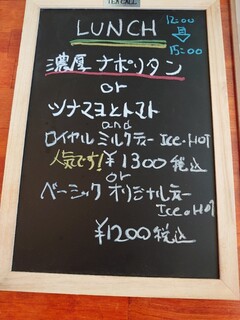 LUNCH
12:00
⇓
15:00
濃厚ナポリタン
or
ツナマヨとトマト
and
ロイヤルミルクティー Ice.HOT
人気です! ¥1300 税込
or
ベーシック オリジナルティー
Ice.HOT
¥1200税込